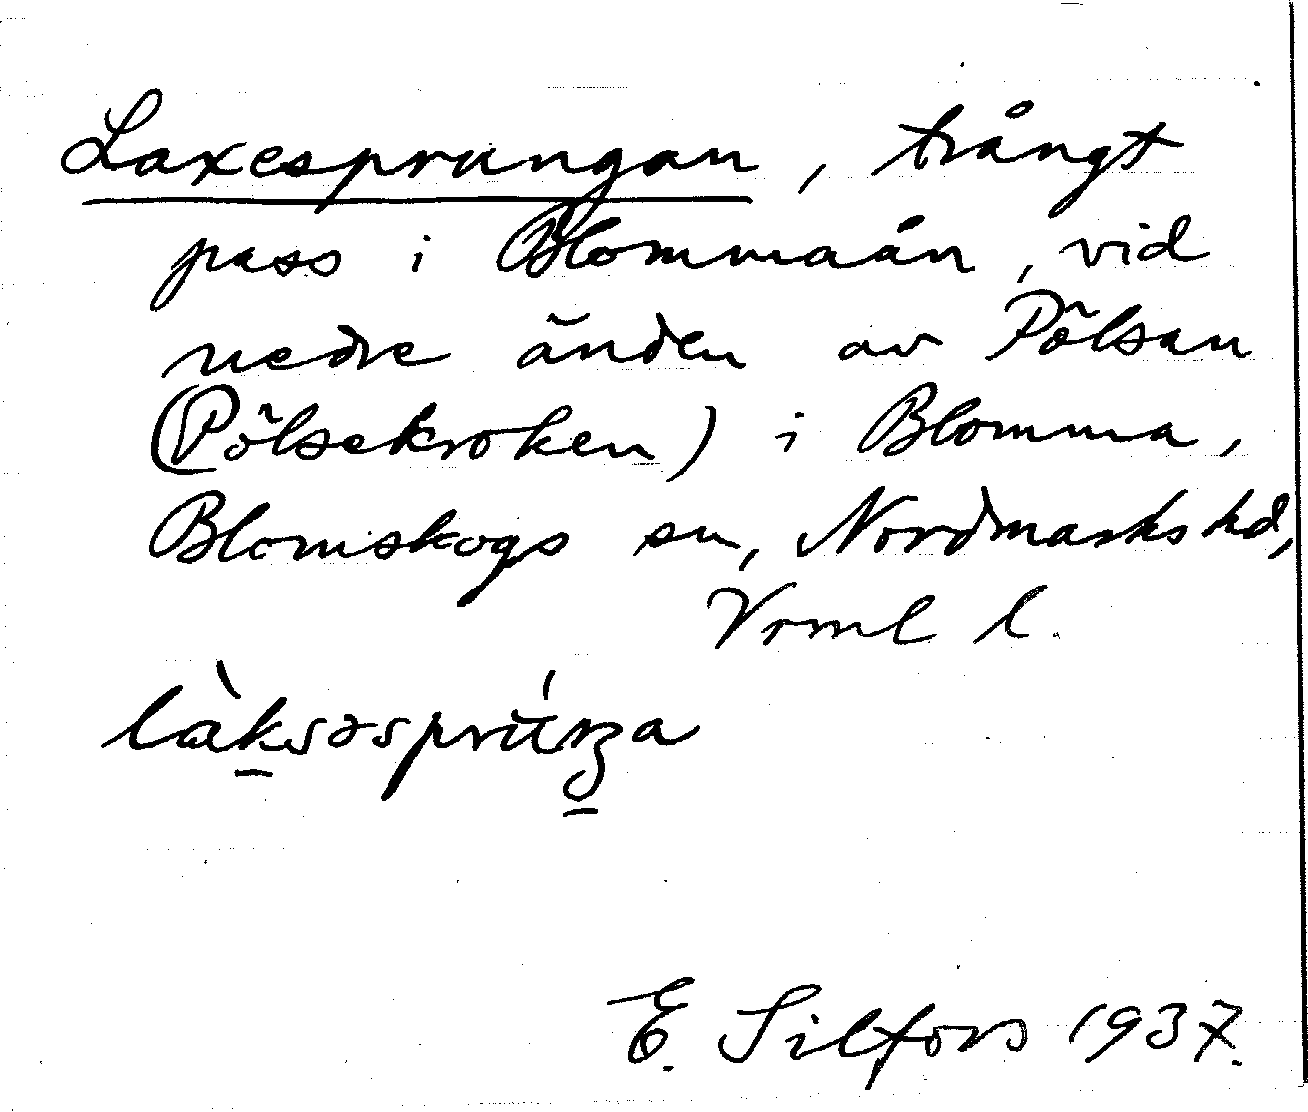 Laxesprungan, trångt
pass i Blommaån, vid
nedre änden av Pölsan
(Pölsekroken) i Blomma,
Blomskogs sn, Nordmarks hd,
Vrml l.
làksəsprúŋa
E. Silfors 1937.